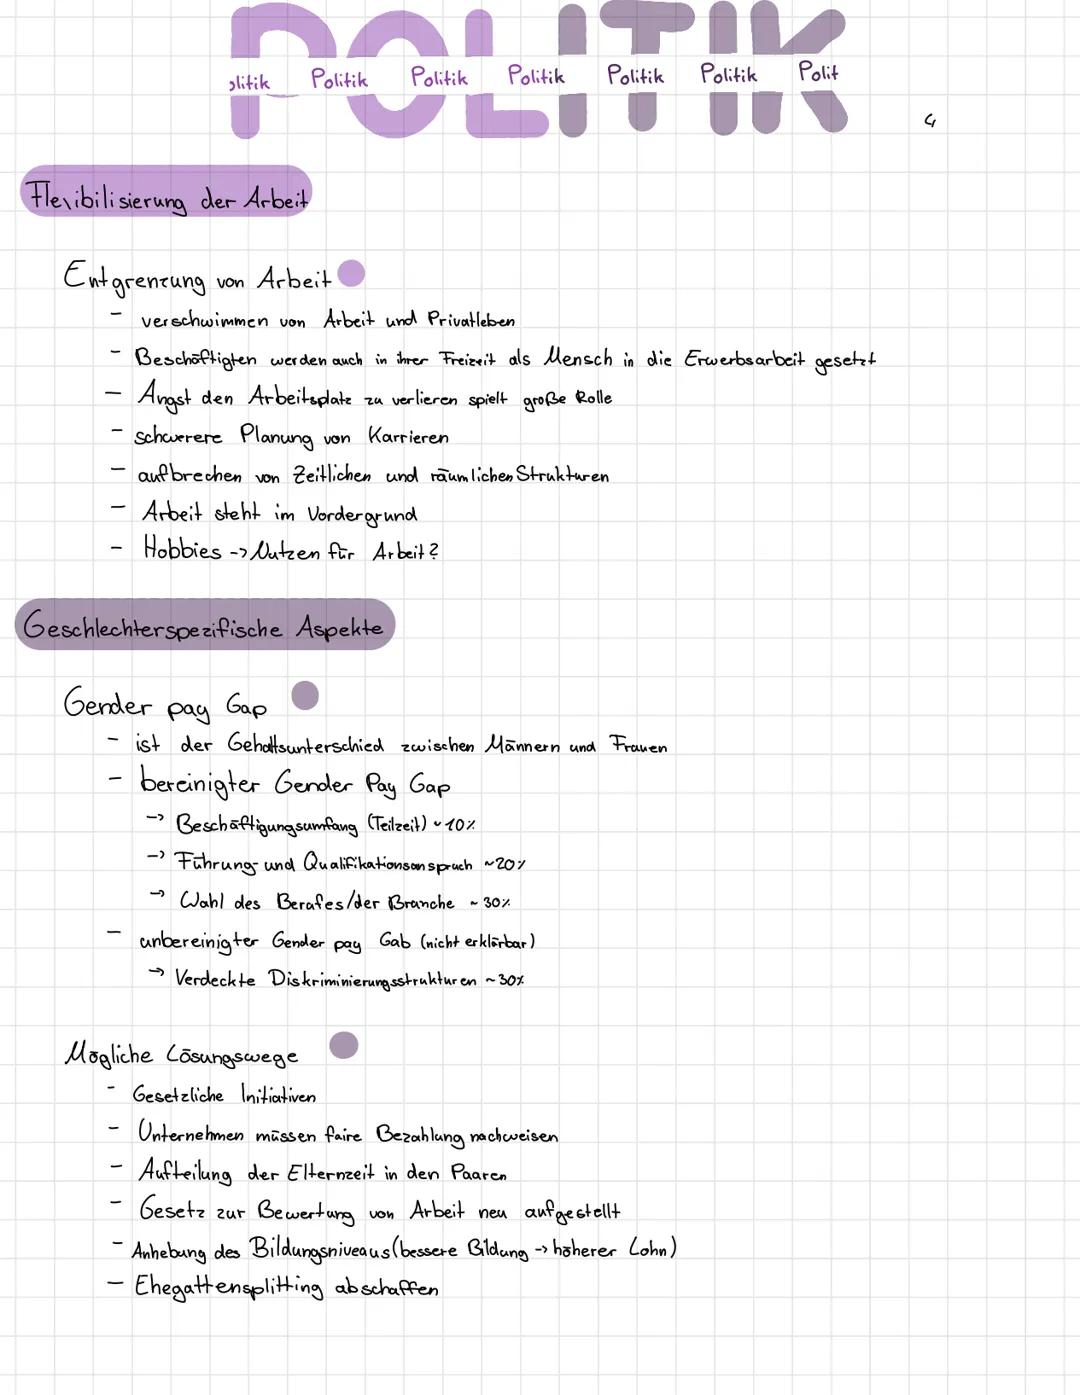 POLITIK
olitik Politik Politik Politik Politik Politik Polit
4
Flexibilisierung der Arbeit
Entgrenzung von Arbeit
- verschwimmen von Arbeit und Privatleben
- Beschäftigten werden auch in ihrer Freizeit als Mensch in die Erwerbsarbeit gesetzt
- Angst den Arbeitsplatz zu verlieren spielt große Rolle
- schwerere Planung von Karrieren
- aufbrechen von Zeitlichen und räumlichen Strukturen
- Arbeit steht im Vordergrund
- Hobbies -> Nutzen für Arbeit?
Geschlechterspezifische Aspekte
Gender pay Gap
- ist der Gehaltsunterschied zwischen Männern und Frauen
- bereinigter Gender Pay Gap
-> Beschäftigungsumfang (Teilzeit) ~10%
-> Führung- und Qualifikationsanspruch ~20%
-> Wahl des Berufes/der Branche ~30%
- unbereinigter Gender pay Gab (nicht erklärbar)
-> Verdeckte Diskriminierungsstrukturen ~30%
Mögliche Lösungswege
- Gesetzliche Initiativen
- Unternehmen müssen faire Bezahlung nachweisen
- Aufteilung der Elternzeit in den Paaren
- Gesetz zur Bewertung von Arbeit neu aufgestellt
- Anhebung des Bildungsniveaus (bessere Bildung -> höherer Lohn)
- Ehegattensplitting abschaffen